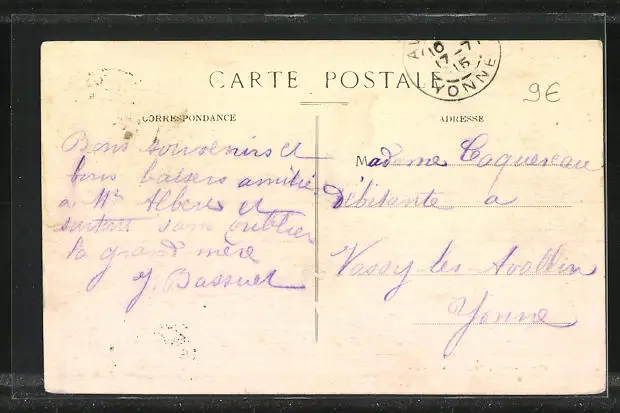 CARTE POSTALE
CORRESPONDANCE
Bons souvenirs et
bons baisers amitiés
a Mr Albert et
surtout sans oublier
la grand mère
J. Bassuet
ADRESSE
Madame Coquereau
Débitante a
Vassy les Avallon
Yonne
10-7
17 15
YONNE
9€